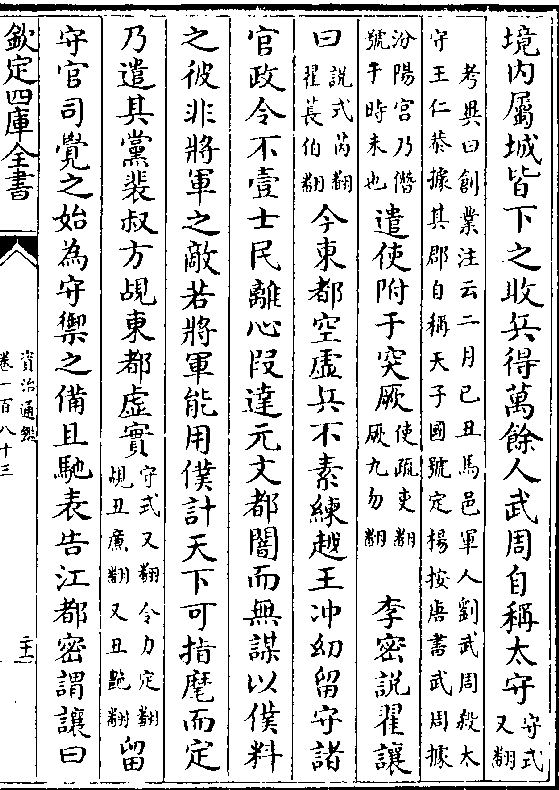 境内屬城皆下之收兵得萬餘人武周自稱太守守式又翻
考異曰創業注云二月己丑馬邑軍人劉武周殺太
守王仁恭據其郡自稱天子國號定楊按唐書武周據
汾陽宫乃僭
號于時未也
遣使附于突厥使疏吏翻
厥九勿翻
李密説翟讓
曰説式芮翻
翟萇伯翻
今東都空虚兵不素練越王冲幼留守諸
官政令不壹士民離心段達元文都闇而無謀以僕料
之彼非將軍之敵若將軍能用僕計天下可指麾而定
乃遣其黨裴叔方覘東都虚實守式又翻令力定翻
覘丑廉翻又丑艶翻
留
守官司覺之始為守禦之備且馳表告江都密謂讓曰
欽定四庫全書
資治通鑑
卷一百八十三
二十一